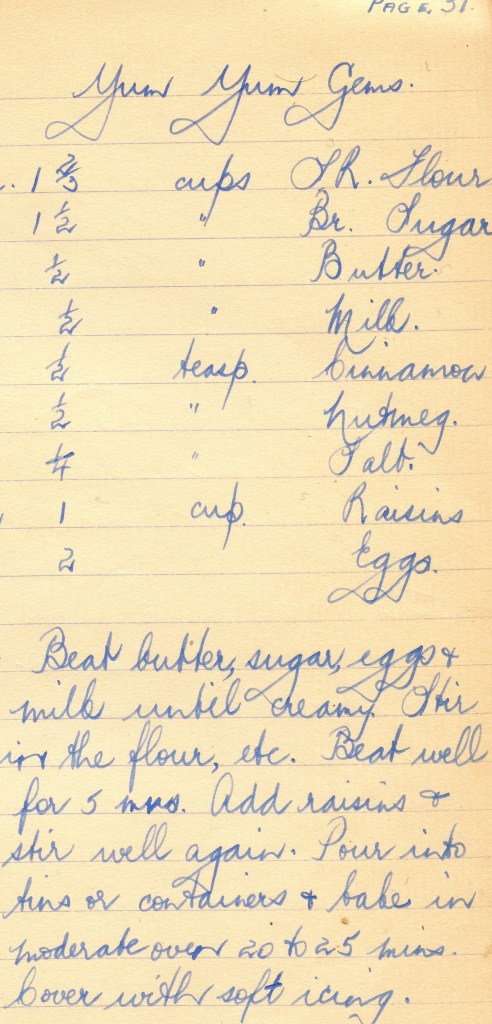 PAGE 31.
Yum Yum Gems.
1 2/3 cups S.R. Flour
1 1/2 " Br. Sugar
1/2 " Butter.
1/2 " Milk.
1/2 teasp. Cinnamon
1/2 " Nutmeg.
1/4 " Salt.
1 cup. Raisins
2 Eggs.
Beat butter, sugar, eggs &
milk until creamy. Stir
in the flour, etc. Beat well
for 5 mns. Add raisins &
stir well again. Pour into
tins or containers & bake in
moderate oven 20 to 25 mins.
Cover with soft icing.